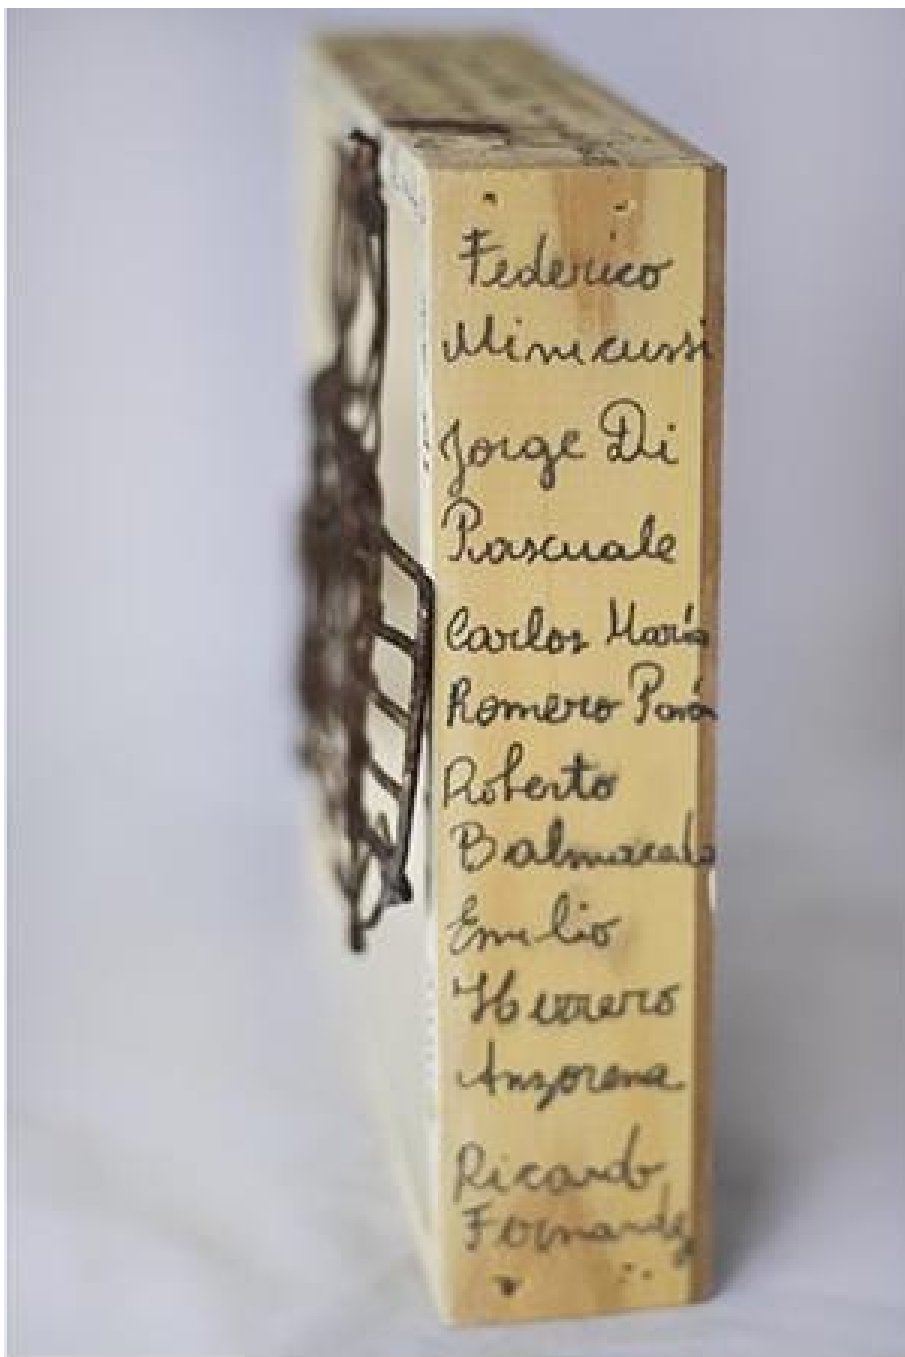 Federico
Minicussi
Jorge Di
Pascuale
Carlos María
Romero Pavón
Roberto
Balmaceda
Emilio
Herrero
Anzorena
Ricardo
Fernandez